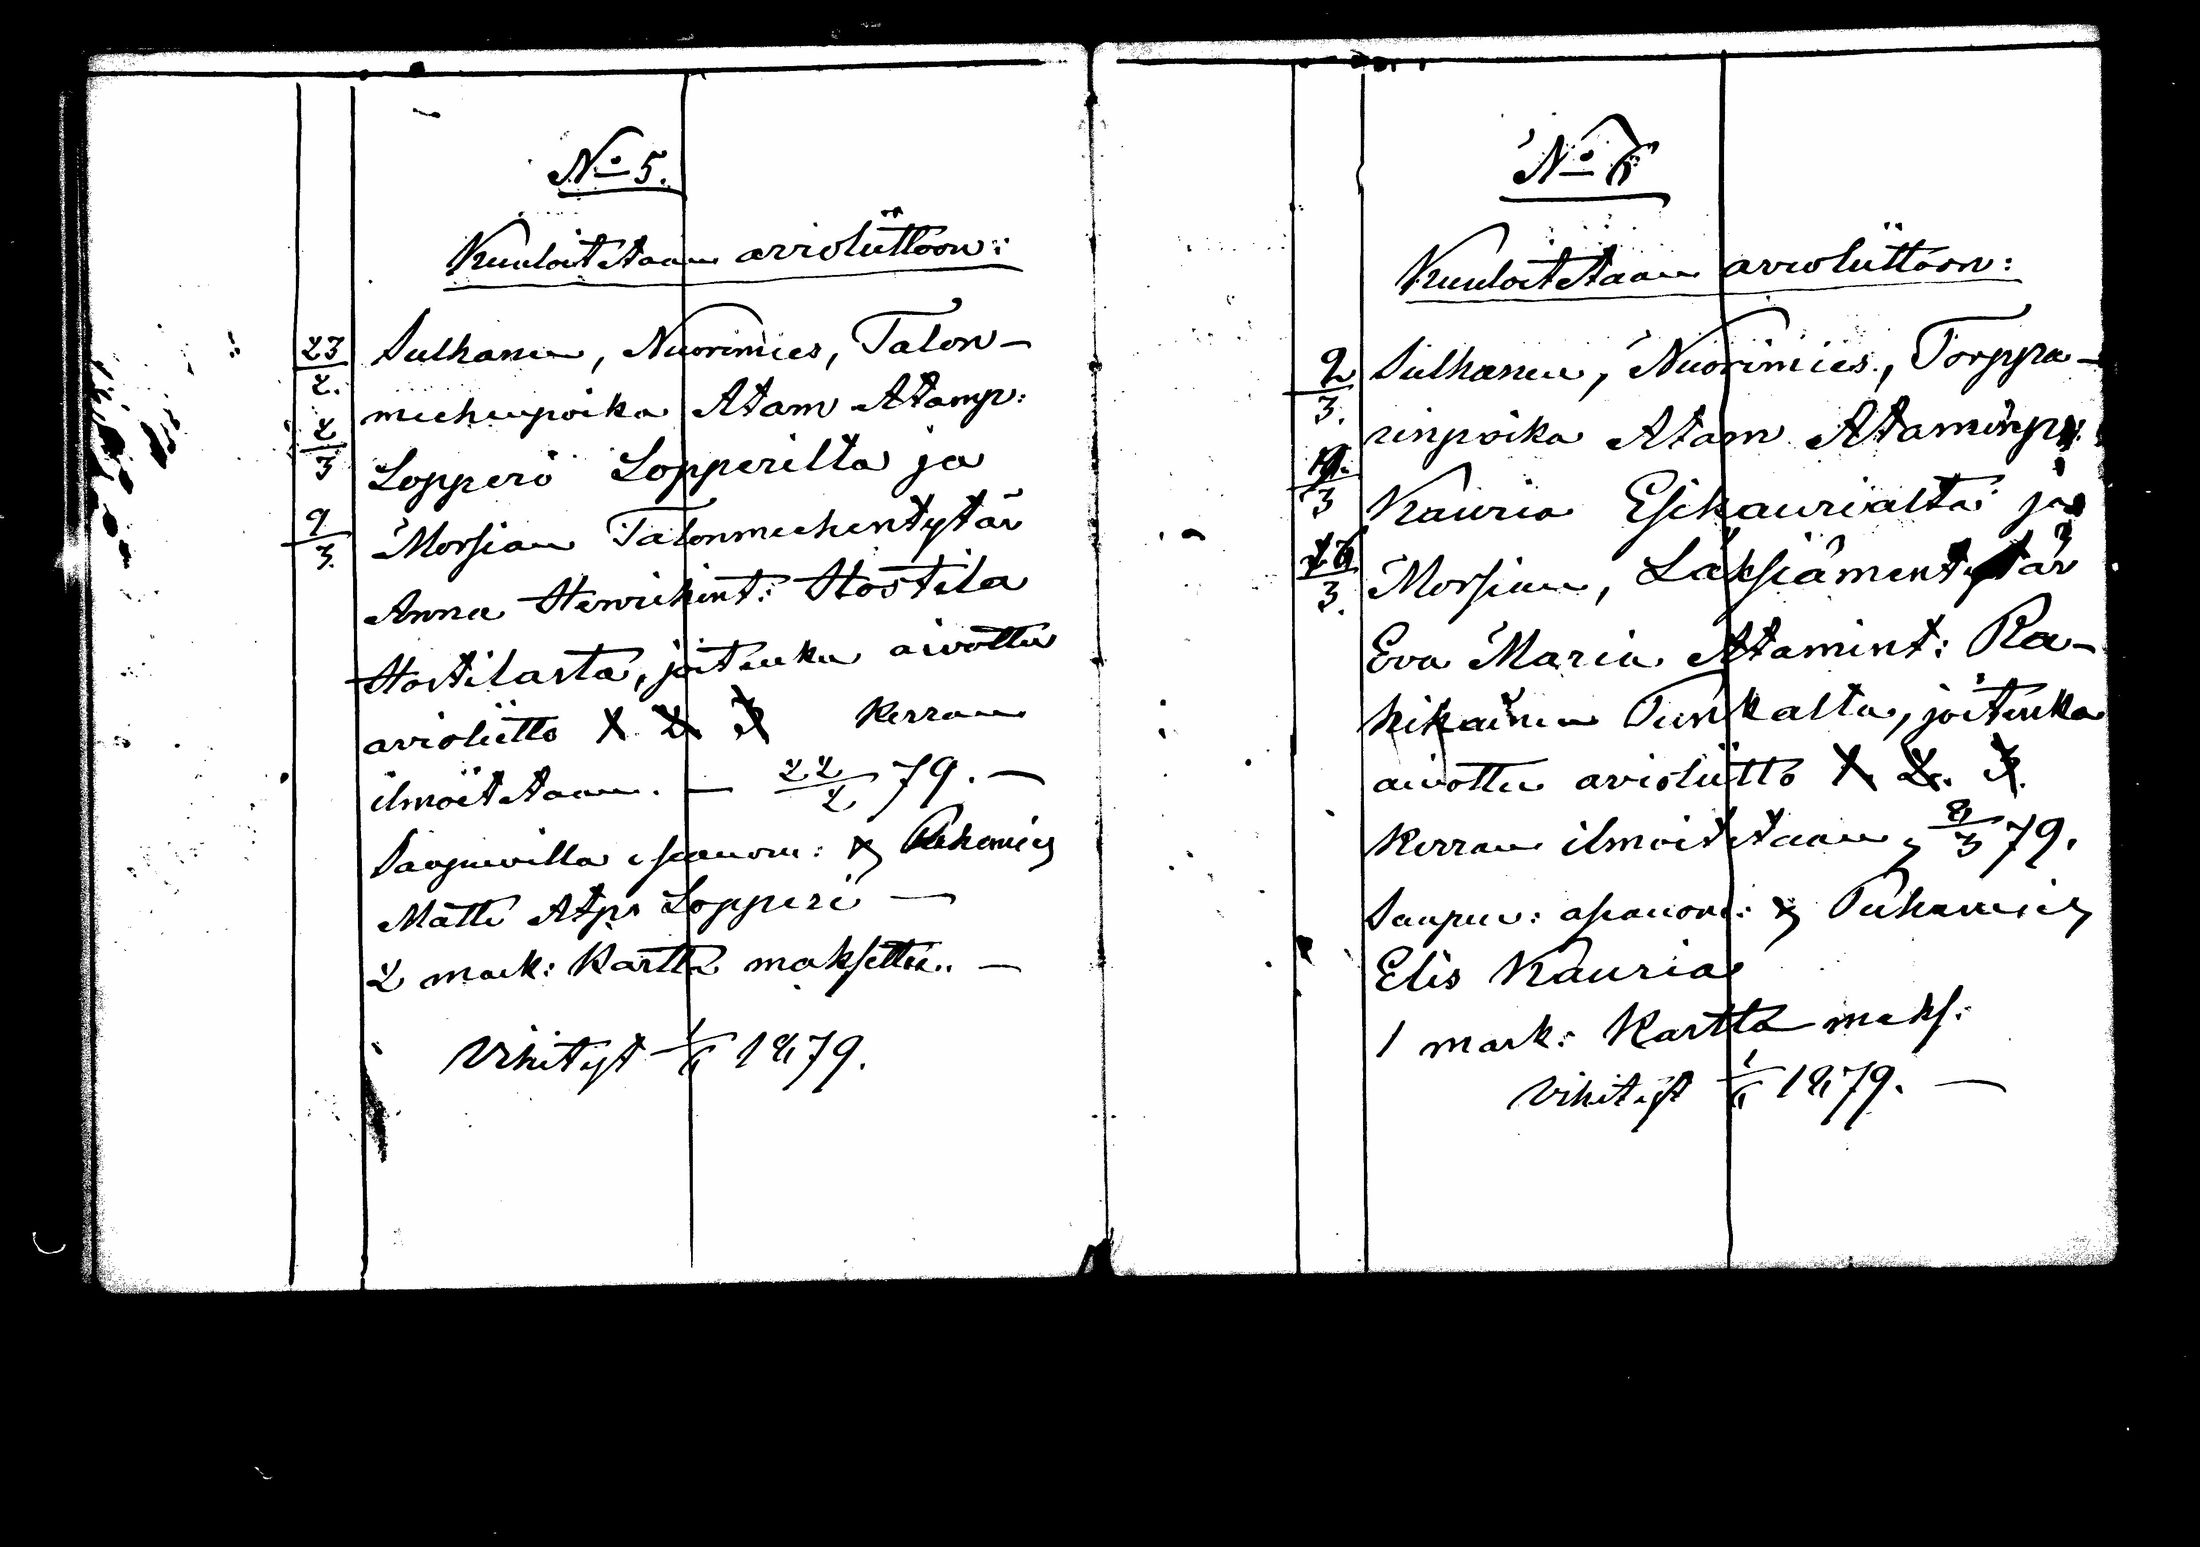 No 5.
Kuuloitetaan avioliittoon:
23/2. Sulhanen, Nuorimies, Talon-
miehenpoika Atam Atamp:
2/3 Lopperi Lopperilta ja
9/3. Morsian Talonmiehentytär
Anna Henrichint: Hostila
Hostilasta, joitenka aivottu
avioliitto 1. 2. 3. kerran
ilmoitetaan. — 22/2 79. —
Saapuvilla Puhemies
Matti Atp. Lopperi —
2 mark: Kartta maksettu. —
Vihityt 1/6 1879.
No 6
Kuuloitetaan avioliittoon:
9/3. Sulhanen, Nuorimies, Torppa-
rinpoika Atam Ataminp:
19./3 Kauria Esikaurialta ja
26/3. Morsian, Läksiämentytär
Eva Maria Atamint: Ra-
hikainen Punkalta, joitenka
aivottu avioliitto 1. 2. 3.
kerran ilmoitetaan, 8/3 79.
Saapuv: asianom: Puhemies
Elis Kauria
1 mark: Kartta maks:
Vihityt 1/6 1879. —